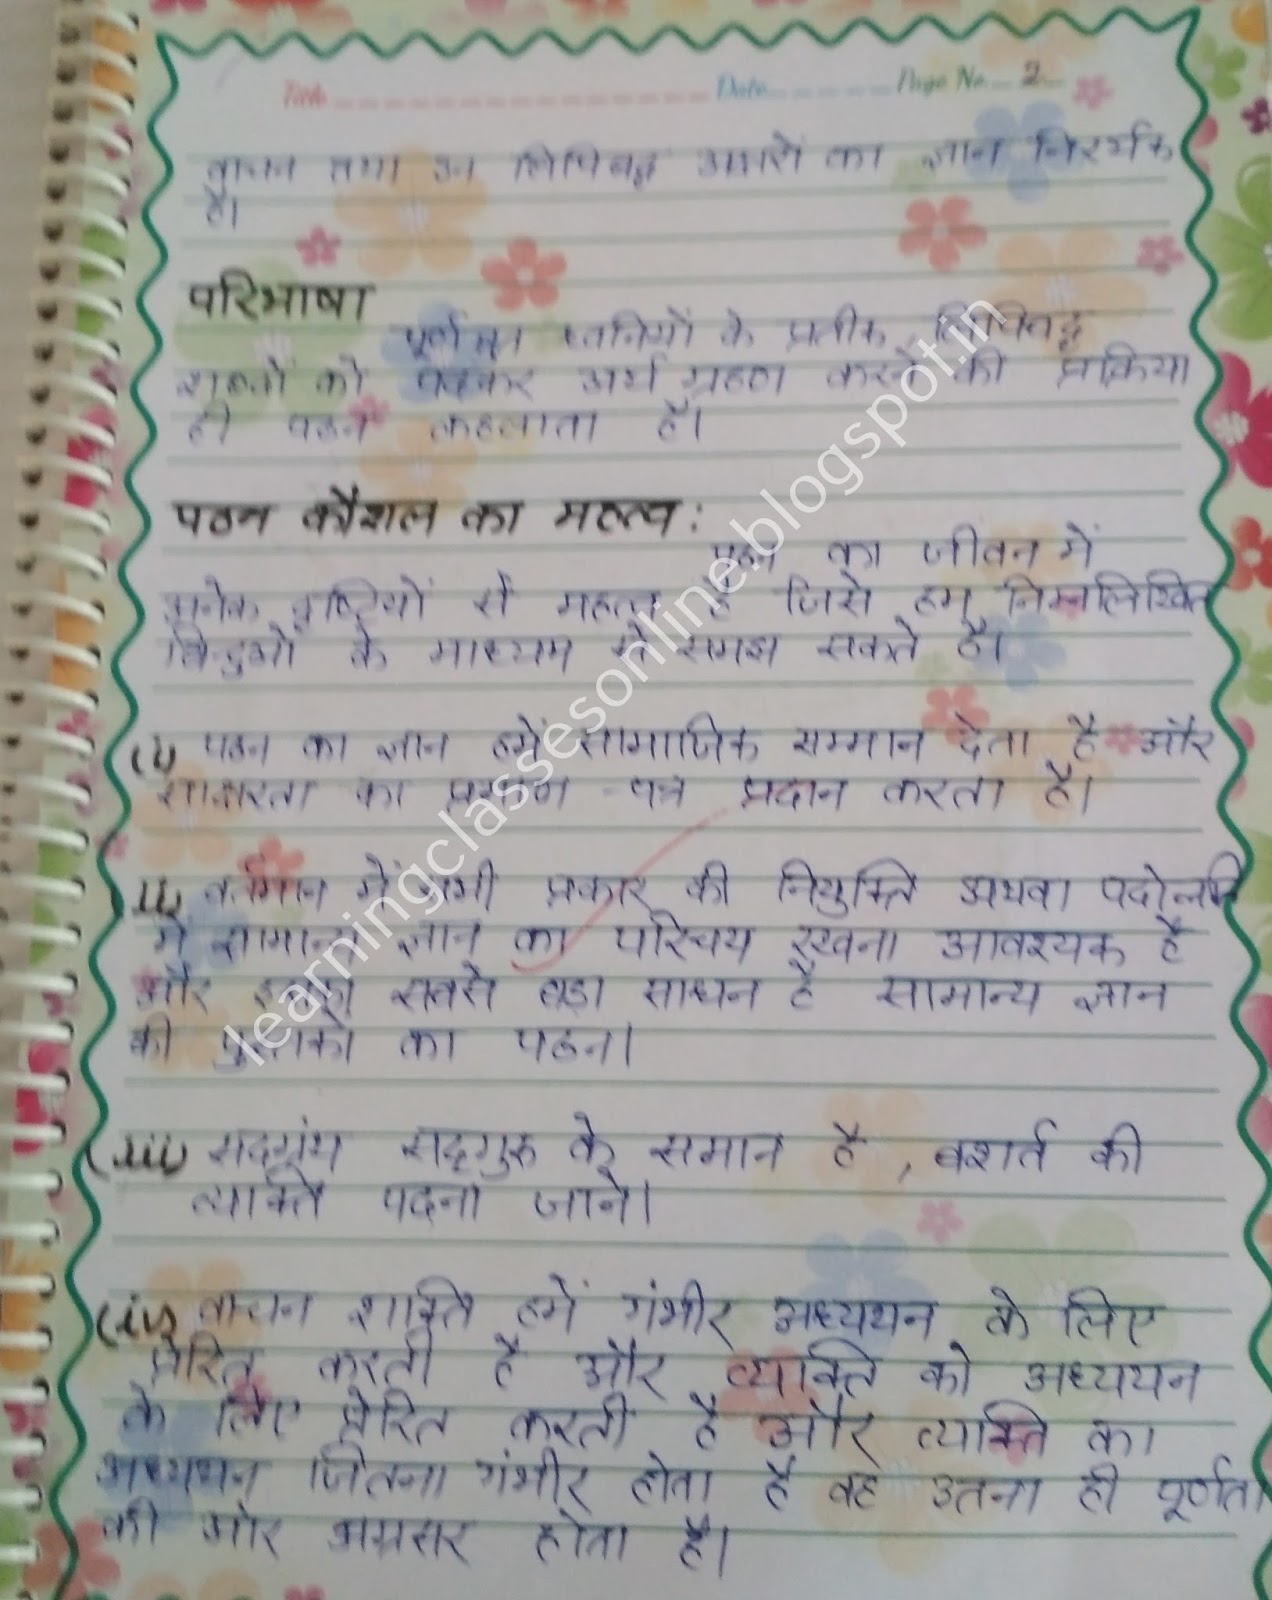 Title Date Page No. 2
वाचन तथा उन लिपिबद्ध अक्षरों का ज्ञान निरर्थक
है।
परिभाषा
ध्वनियों के प्रतीक लिपिबद्ध
शब्दों को पढकर अर्थ ग्रहण करने की प्रक्रिया
ही पठन कहलाता है।
पठन कौशल का महत्व:
पठन का जीवन में
अनेक दृष्टियों से महत्व है जिसे हम निम्नलिखित
बिन्दुओं के माध्यम से समझ सकते है।
(i) पठन का ज्ञान हमें सामाजिक सम्मान देता है और
साक्षरता का प्रमाण-पत्र प्रदान करता है।
ii) वर्तमान में सभी प्रकार की नियुक्ति अथवा पदोन्नति
में सामान्य ज्ञान का परिचय रखना आवश्यक है
और इसका सबसे बड़ा साधन है सामान्य ज्ञान
की पुस्तकों का पठन।
(iii) सदग्रंथ सद्गुरु के समान है, बशर्त की
व्यक्ति पढना जाने।
(iv) वाचन शक्ति हमें गंभीर अध्ययन के लिए
प्रेरित करती है और व्यक्ति को अध्ययन
के लिए प्रेरित करती है और व्यक्ति का
अध्ययन जितना गंभीर होता है वह उतना ही पूर्णता
की ओर अग्रसर होता है।
learningclassesonline.blogspot.in